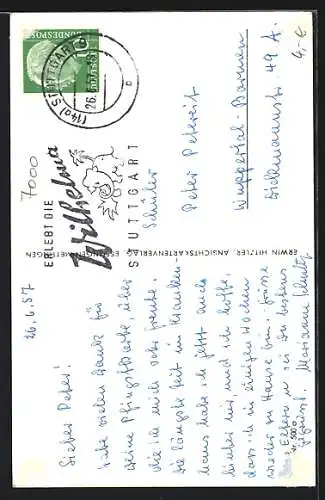 26.6.57
Lieber Peter!
Habe vielen Dank für
deine Pfingstkarte, über
die ich mich sehr freute.
Die längste Zeit im Kranken
haus habe ich jetzt auch
hinter mir, und ich hoffe,
dass ich in einigen Wochen
wieder zu Hause bin. Grüsse
Eltern u. sei du bestens
gegrüsst. Marianne
ERWIN HITZLER, ANSICHTSKARTENVERLAG, ESSLINGEN-METTINGEN
500 e
7000
ERLEBT DIE
Wilhelma
STUTTGART
(14a) STUTTGART
26.
DEUTSCHE
BUNDESPOST
10
Schüler
Peter Petereit
Wuppertal-Barmen
49 A.
4,-€